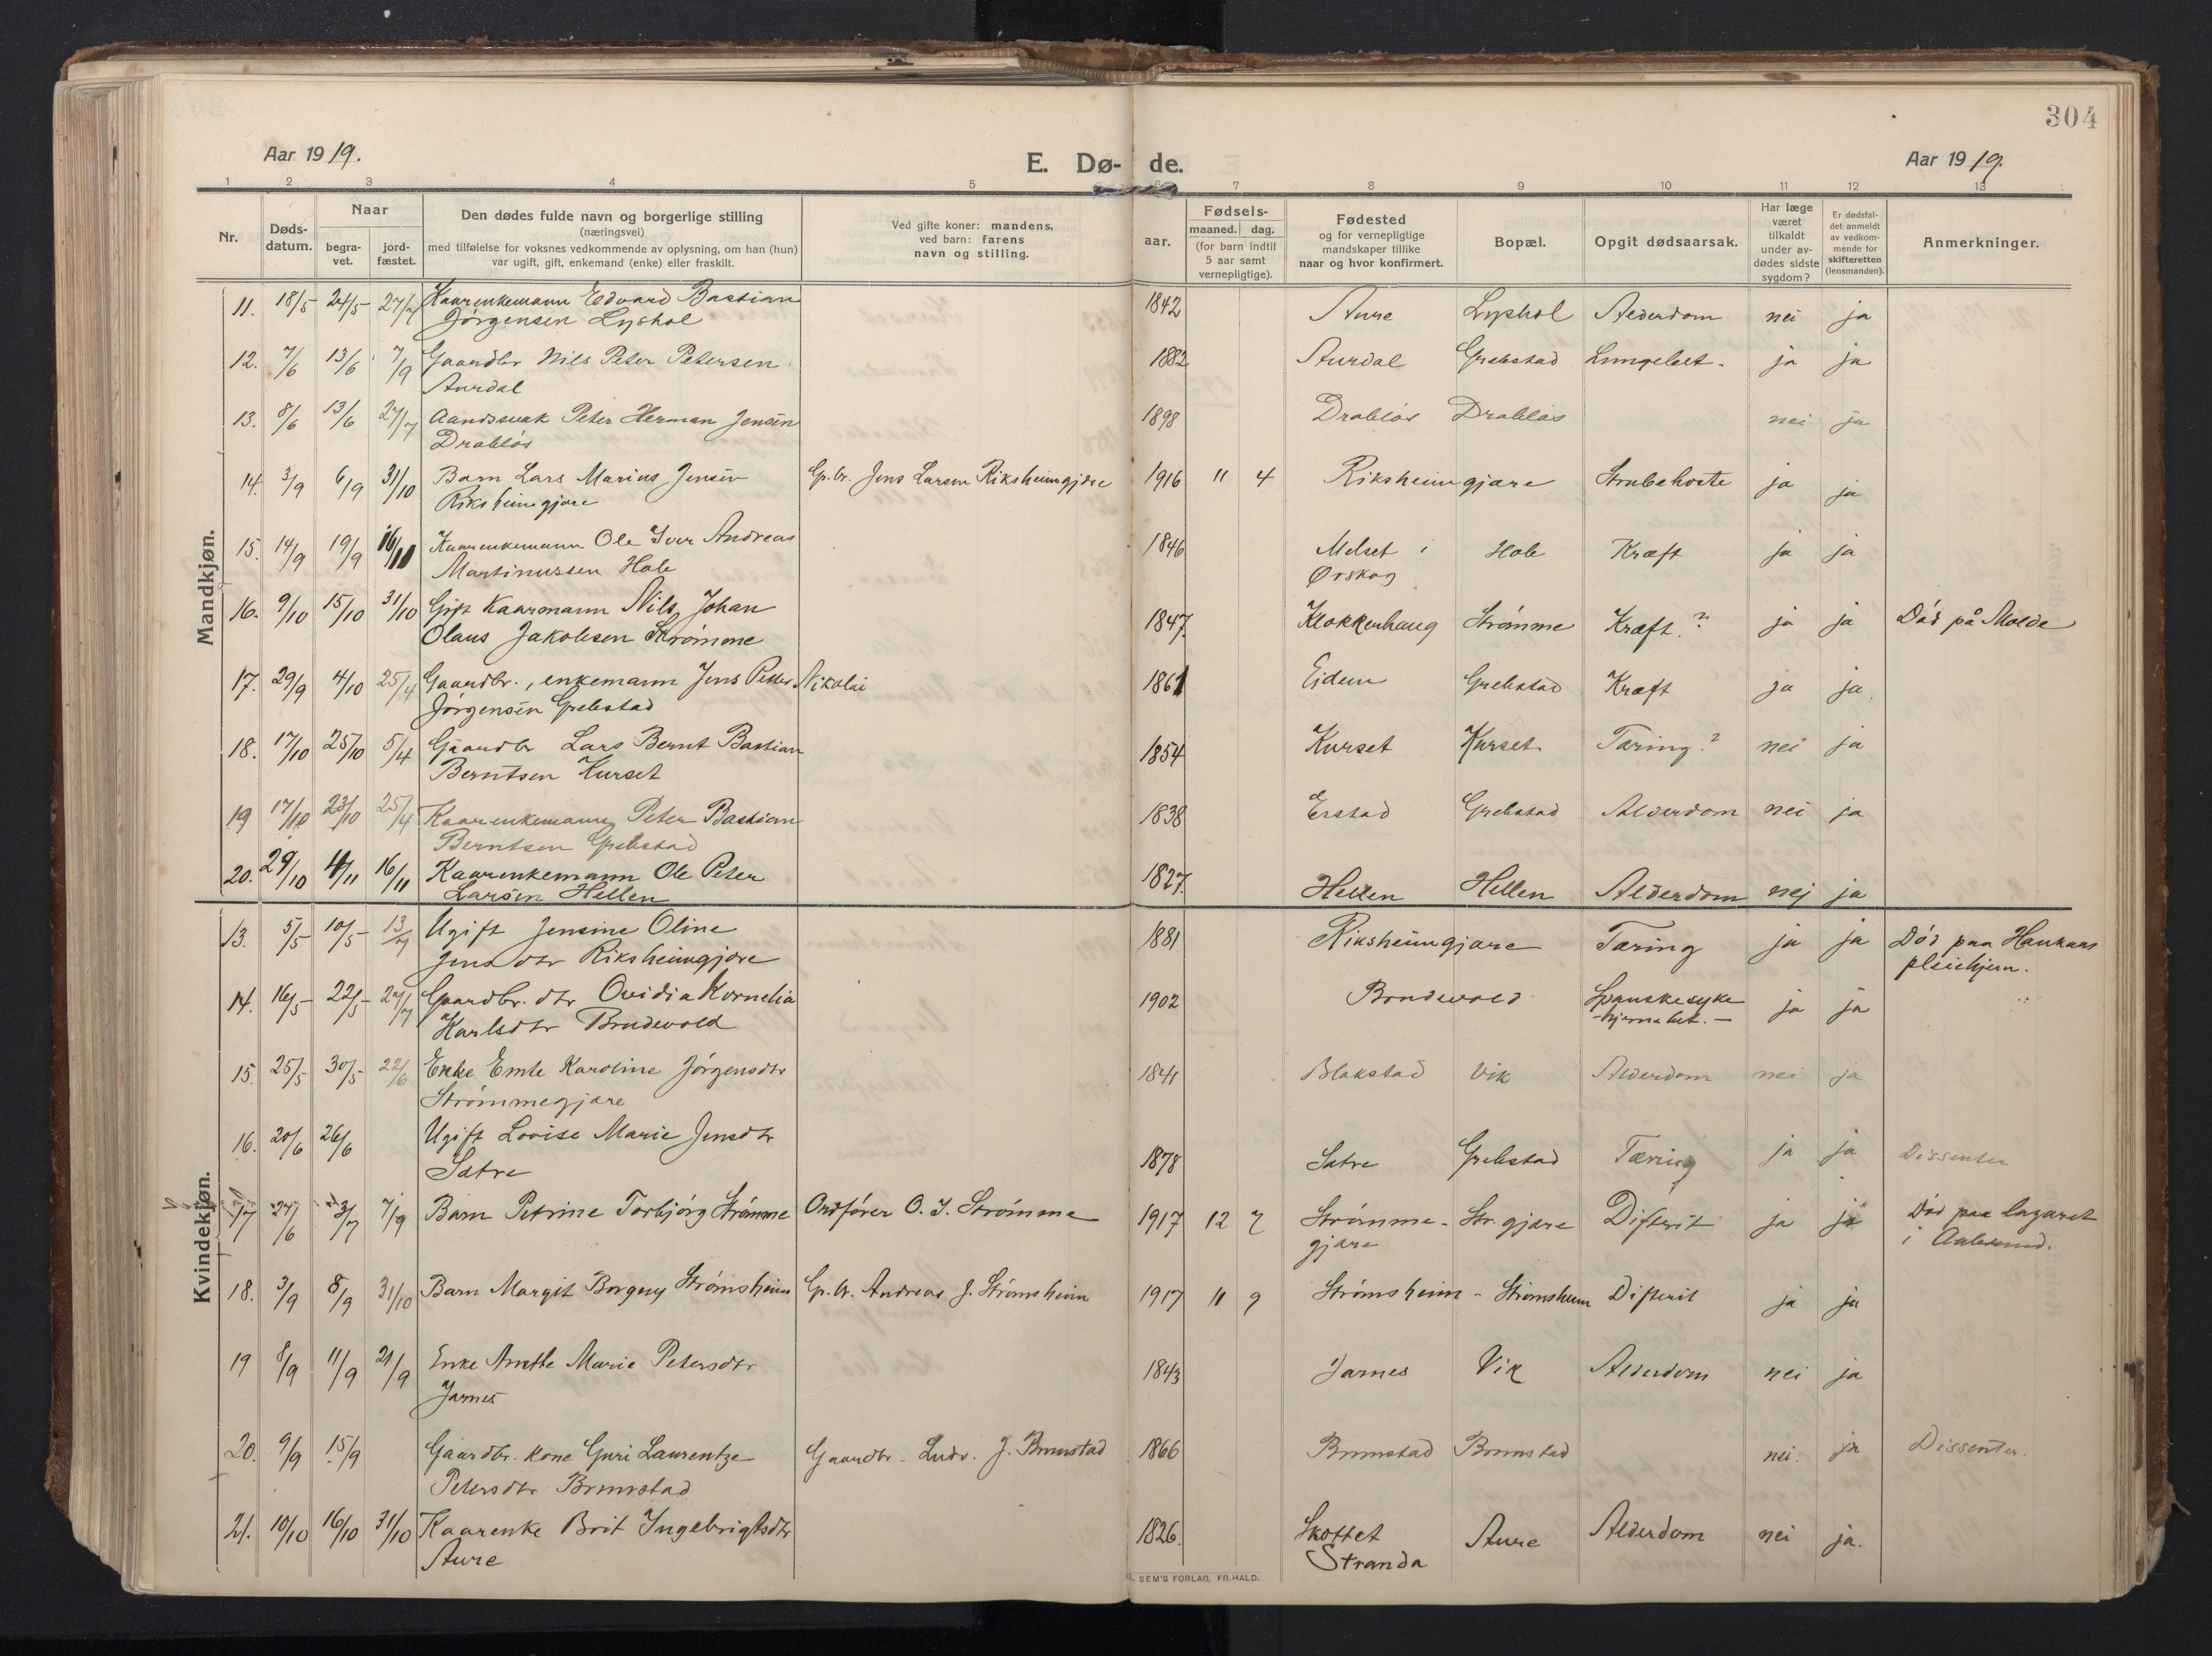 304
Aar 1919.
E. Dø- de.
Aar 1919.
1 2 3 4 5 6 7 8 9 10 11 12 13
Nr.
Døds-
datum.
Naar
begra-
vet.
jord-
fæstet.
Den dødes fulde navn og borgerlige stilling
(næringsvei)
med tilføielse for voksnes vedkommende av oplysning, om han (hun)
var ugift, gift, enkemand (enke) eller fraskilt.
Ved gifte koner: mandens,
ved barn: farens
navn og stilling.
aar.
Fødsels-
maaned. dag.
(for barn indtil
5 aar samt
vernepligtige).
Fødested
og for vernepligtige
mandskaper tillike
naar og hvor konfirmert.
Bopæl.
Opgit dødsaarsak.
Har læge
været
tilkaldt
under av-
dødes sidste
sygdom?
Er dødsfal-
det anmeldt
av vedkom-
mende for
skifteretten
(lensmanden).
Anmerkninger.
Mandkjøn.
11. 18/5 24/5 27/7 Kaarenkemann Edvard Bastian 1842 Aure Lyshol Alderdom nei ja
Jørgensen Lyshol
12. 7/6 13/6 7/9 Gaardbr Nils Peter Petersen 1882 Aurdal Grebstad Lungebet. ja ja
Aurdal
13. 8/6 13/6 27/7 Aandssvak Peter Herman Jensen 1898 Drabløs Drabløs nei ja
Drabløs
14. 3/9 6/9 31/10 Barn Lars Marius Jensen G.br. Jens Larsen Riksheimgjære 1916 11 4 Riksheimgjære Strubehoste ja ja
Riksheimgjære
15. 14/9 19/9 16/11 Kaarenkemann Ole Iver Andreas 1846 Melset i Hole Kræft ja ja
Martinussen Hole Ørskog
16. 9/10 15/10 31/10 Gift Kaarmann Nils Johan 1847. Klokkerhaug Strømme Kræft.? ja ja Død på Molde
Olaus Jakobsen Strømme
17. 29/9 4/10 25/4 Gaardbr., enkemann Jens Petter Nikolai 1861 Eidem Grebstad Kræft ja ja.
Jørgensen Grebstad
18. 17/10 25/10 5/4 Gaardbr Lars Bernt Bastian 1854 Kurset Kurset Tæring? nei ja
Berntsen Kurset
19 17/10 23/10 25/4 Kaarenkemann Peter Bastian 1838 Erstad Grebstad Alderdom nei ja
Berntsen Grebstad
20. 29/10 4/11 16/11 Kaarenkemann Ole Peter 1827. Hellen Hellen Alderdom nej ja
Larsen Hellen
Kvindekjøn.
13. 5/5 10/5 13/7 Ugift Jensine Oline 1881 Riksheimgjære Tæring ja ja Død paa Haukaas
Jensdtr Riksheimgjære pleiehjem.
14. 16/5 22/5 27/7 Gaardbr. dtr Ovidia Kornelia 1902 Brudevold Spanskesyke ja ja
Karlsdtr Brudevold -hjernebet.-
15. 25/5 30/5 22/6 Enke Emte Karoline Jørgensdtr 1841 Blakstad Vik Alderdom nei ja
Strømmegjære
16. 20/6 26/6 Ugift Lovise Marie Jensdtr 1878 Sætre Grebstad Tæring ja ja Dissenter
Sætre
17 27/6 3/7 7/9 Barn Petrine Torbjørg Strømme Ordfører O. J. Strømme 1917 12 7 Strømme- Str.gjære Difterit ja ja Død paa lazaret
gjære i Aalesund.
18. 3/9 8/9 31/10 Barn Margit Borgny Strømsheim G.br. Andreas J. Strømsheim 1917 11 9 Strømsheim - Strømsheim Difterit ja ja
19 8/9 11/9 21/9 Enke Anethe Marie Petersdtr 1843 Jarnes Vik Alderdom nei ja
Jarnes
20. 9/9 15/9 Gaardbr. kone Guri Laurentze Gaardbr. Ludv. J. Brunstad 1866 Brunstad Brunstad nei. ja Dissenter.
Petersdtr Brunstad
21. 10/10 16/10 31/10 Kaarenke Brit Ingebrigtsdtr 1826. Skottet Aure Alderdom nei ja.
Aure Stranda
SEM'S FORLAG, FR.HALD.